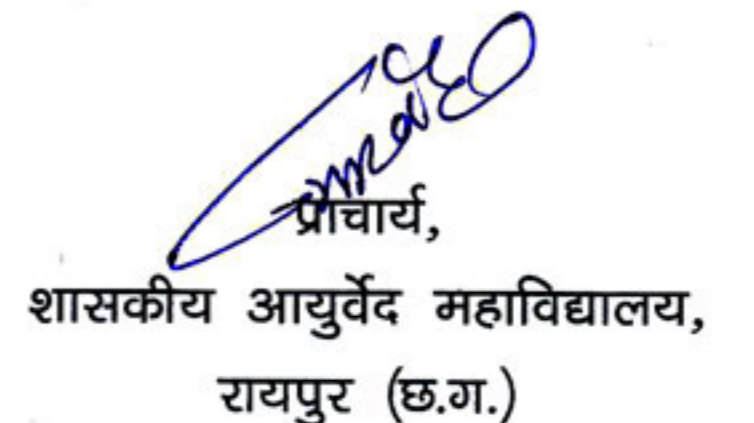 प्राचार्य,
शासकीय आयुर्वेद महाविद्यालय,
रायपुर (छ.ग.)